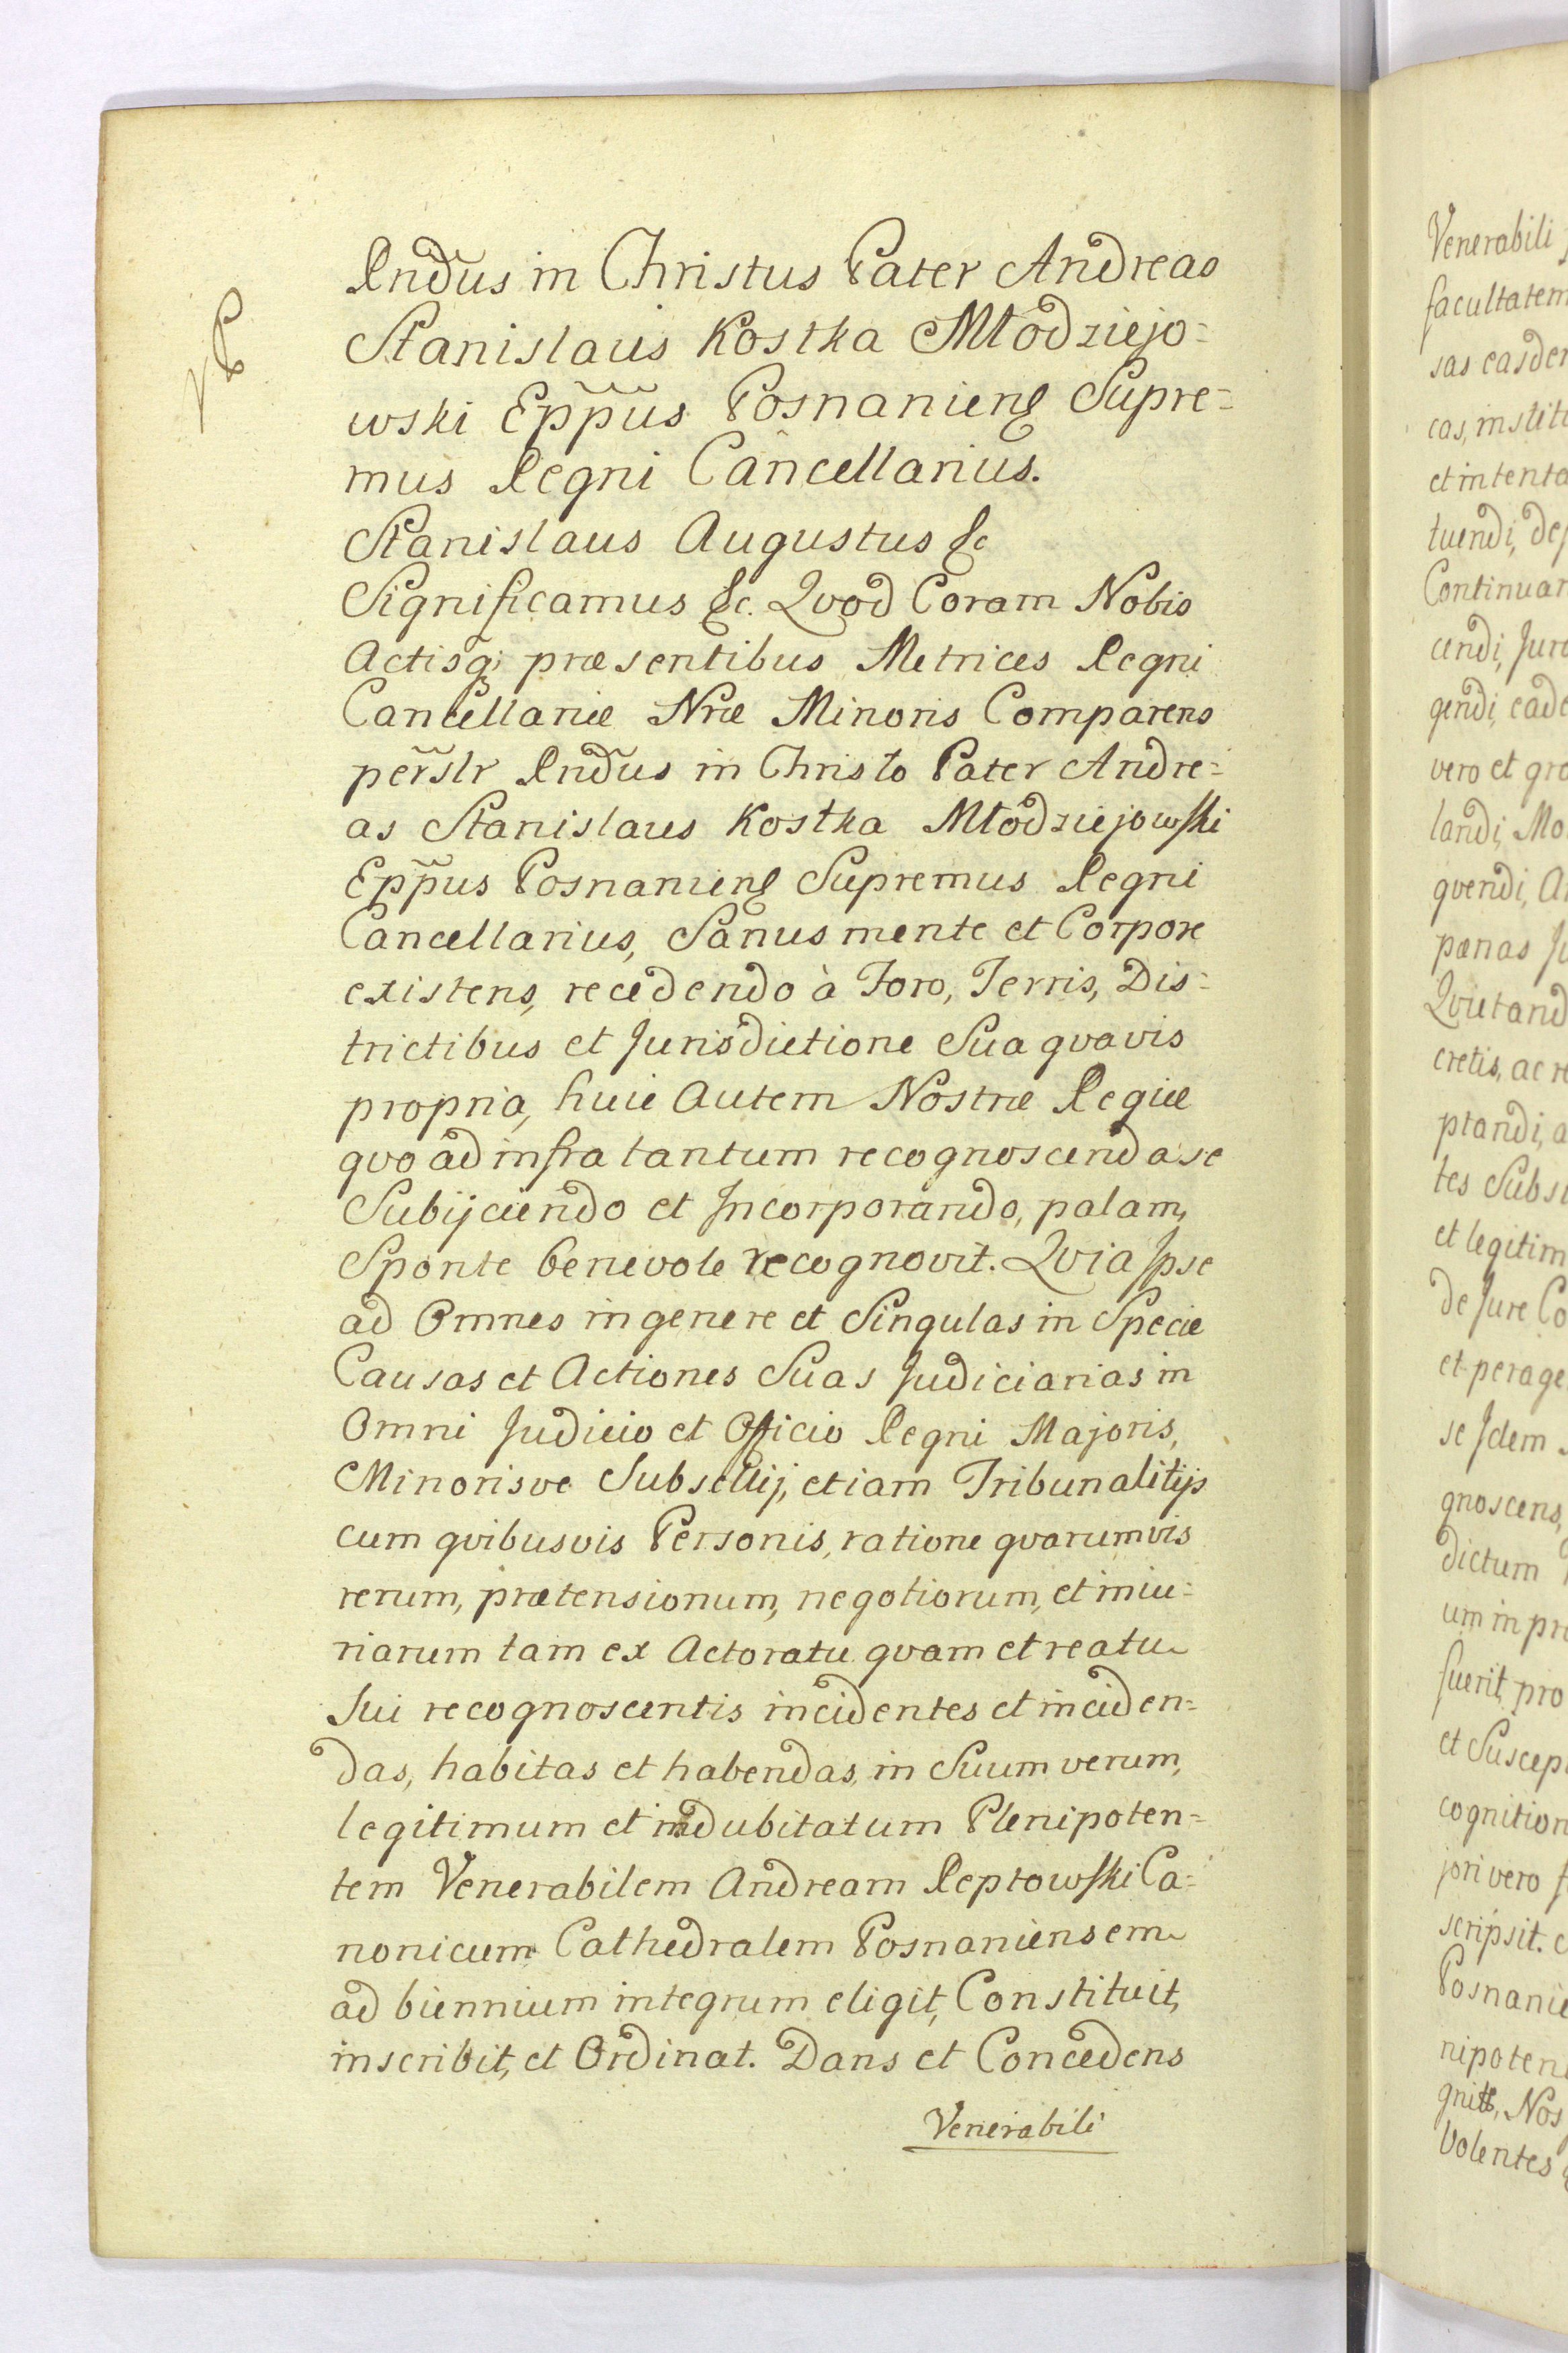 Rndus in Christus Pater Andreas
Stanislaus Kostka Młodziejo=
wski Eppus Posnaniens Supre=
mus Regni Cancellarius.
Stanislaus Augustus &c
Significamus &c. Qvod Coram Nobis
Actisq; præsentibus Metrices Regni
Cancellariæ Nræ Minoris Comparens
perslr Rndus in Christo Pater Andre=
as Stanislaus Kostka Młodziejowski
Eppus Posnaniens Supremus Regni
Cancellarius, Sanus mente et Corpore
existens, recedendo à Foro, Terris, Dis=
trictibus et Jurisdictione Sua qvavis
propria, huic Autem Nostræ Regiæ
qvo ad infra tantum recognoscenda se
Subijciendo et Incorporando, palam,
Sponte benevole recognovit. Qvia Ipse
ad Omnes in genere et Singulas in Specie
Causas et Actiones Suas Judiciarias in
Omni Judicio et Officio Regni Majoris,
Minorisve Subsellij, etiam Tribunalitijs
cum qvibusvis Personis, ratione qvarumvis
rerum, prætensionum, negotiorum, et iniu=
riarum tam ex Actoratu qvam et reatu
Sui recognoscentis incidentes et inciden=
das, habitas et habendas, in Suum verum,
legitimum et indubitatum Plenipoten=
tem Venerabilem Andream Reptowski Ca=
nonicum Cathedralem Posnaniensem
ad biennium integrum eligit, Constituit,
inscribit, et Ordinat. Dans et Concedens
Venerabili
Venerabili
facultatem
sas easdem
cas, institu
et intenta
tuendi, dep
Continuan
cendi, Jura
gendi, eade
vero et gra
landi, Mo
qvendi, A
pænas Ju
Qvietand
cretis, ac re
ptandi, a
tes Subs
et legitim
de Jure Co
et perage
se Idem
gnoscens,
dictum
um in pr
fuerit, pro
et Suscep
cognition
jori vero f
scripsit. C
Posnanie
nipoten
Nos
Volentes